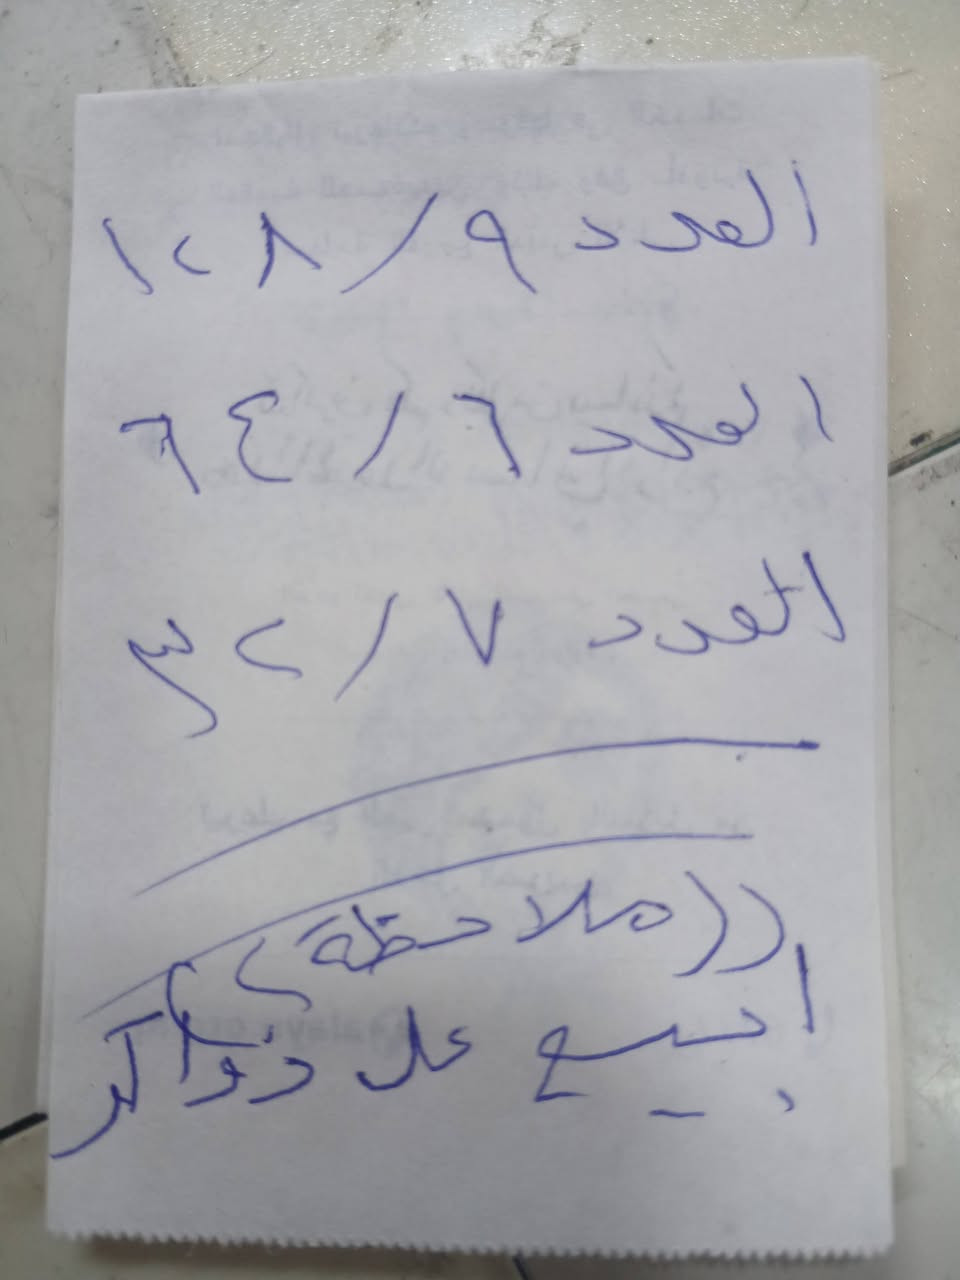 العدد ٩ / ١٢٨
العدد ٦ / ٦٤
العدد ٧ / ٣٢
((ملاحظة))
ابيع عل ذواكر